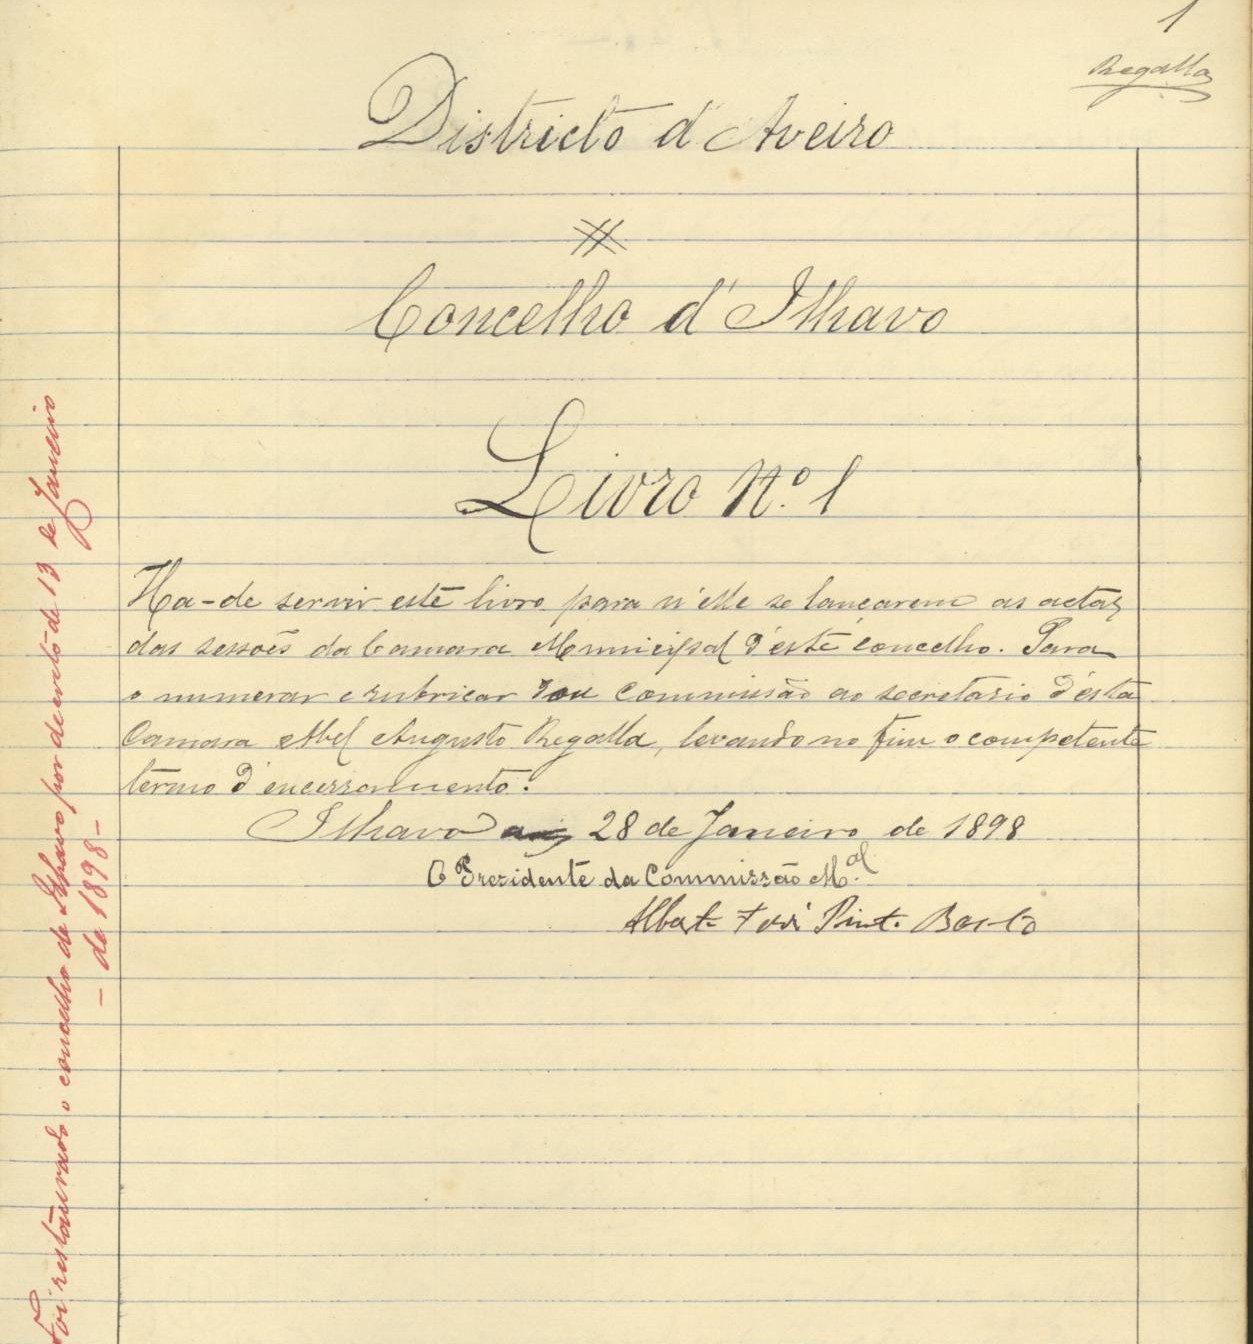 1
Regalla
Districto d'Aveiro
Concelho d'Ilhavo
Livro Nº. 1
Ha-de servir este livro para n'elle se lançarem as actas
das sessões da Camara Municipal d'este concelho. Para
o numerar e rubricar dou commissão ao secretario d'esta
Camara Abel Augusto Regalla, levando no fim o competente
termo d'encerramento.
Ilhavo 28 de Janeiro de 1898
O Prezidente da Commissão M.al
Alberto Pinto Basto
Foi restaurado o concelho de Ilhavo por decreto de 13 de Janeiro
- de 1898 -